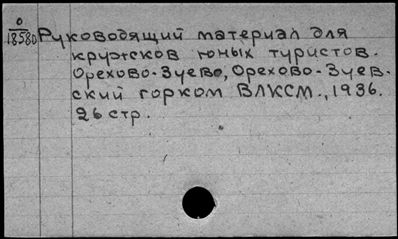 0
18580
Руководящий материал для
кружков юных туристов.
Орехово-Зуево, Орехово-Зуев-
ский горком ВЛКСМ., 1936.
26 стр.